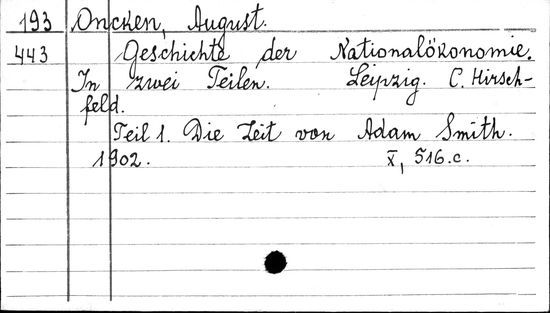 193 Oncken, August.
443 Geschichte der Nationalökonomie.
In zwei Teilen. Leipzig. C. Hirsch-
feld.
Teil 1. Die Zeit von Adam Smith.
1902. X, 516.c.